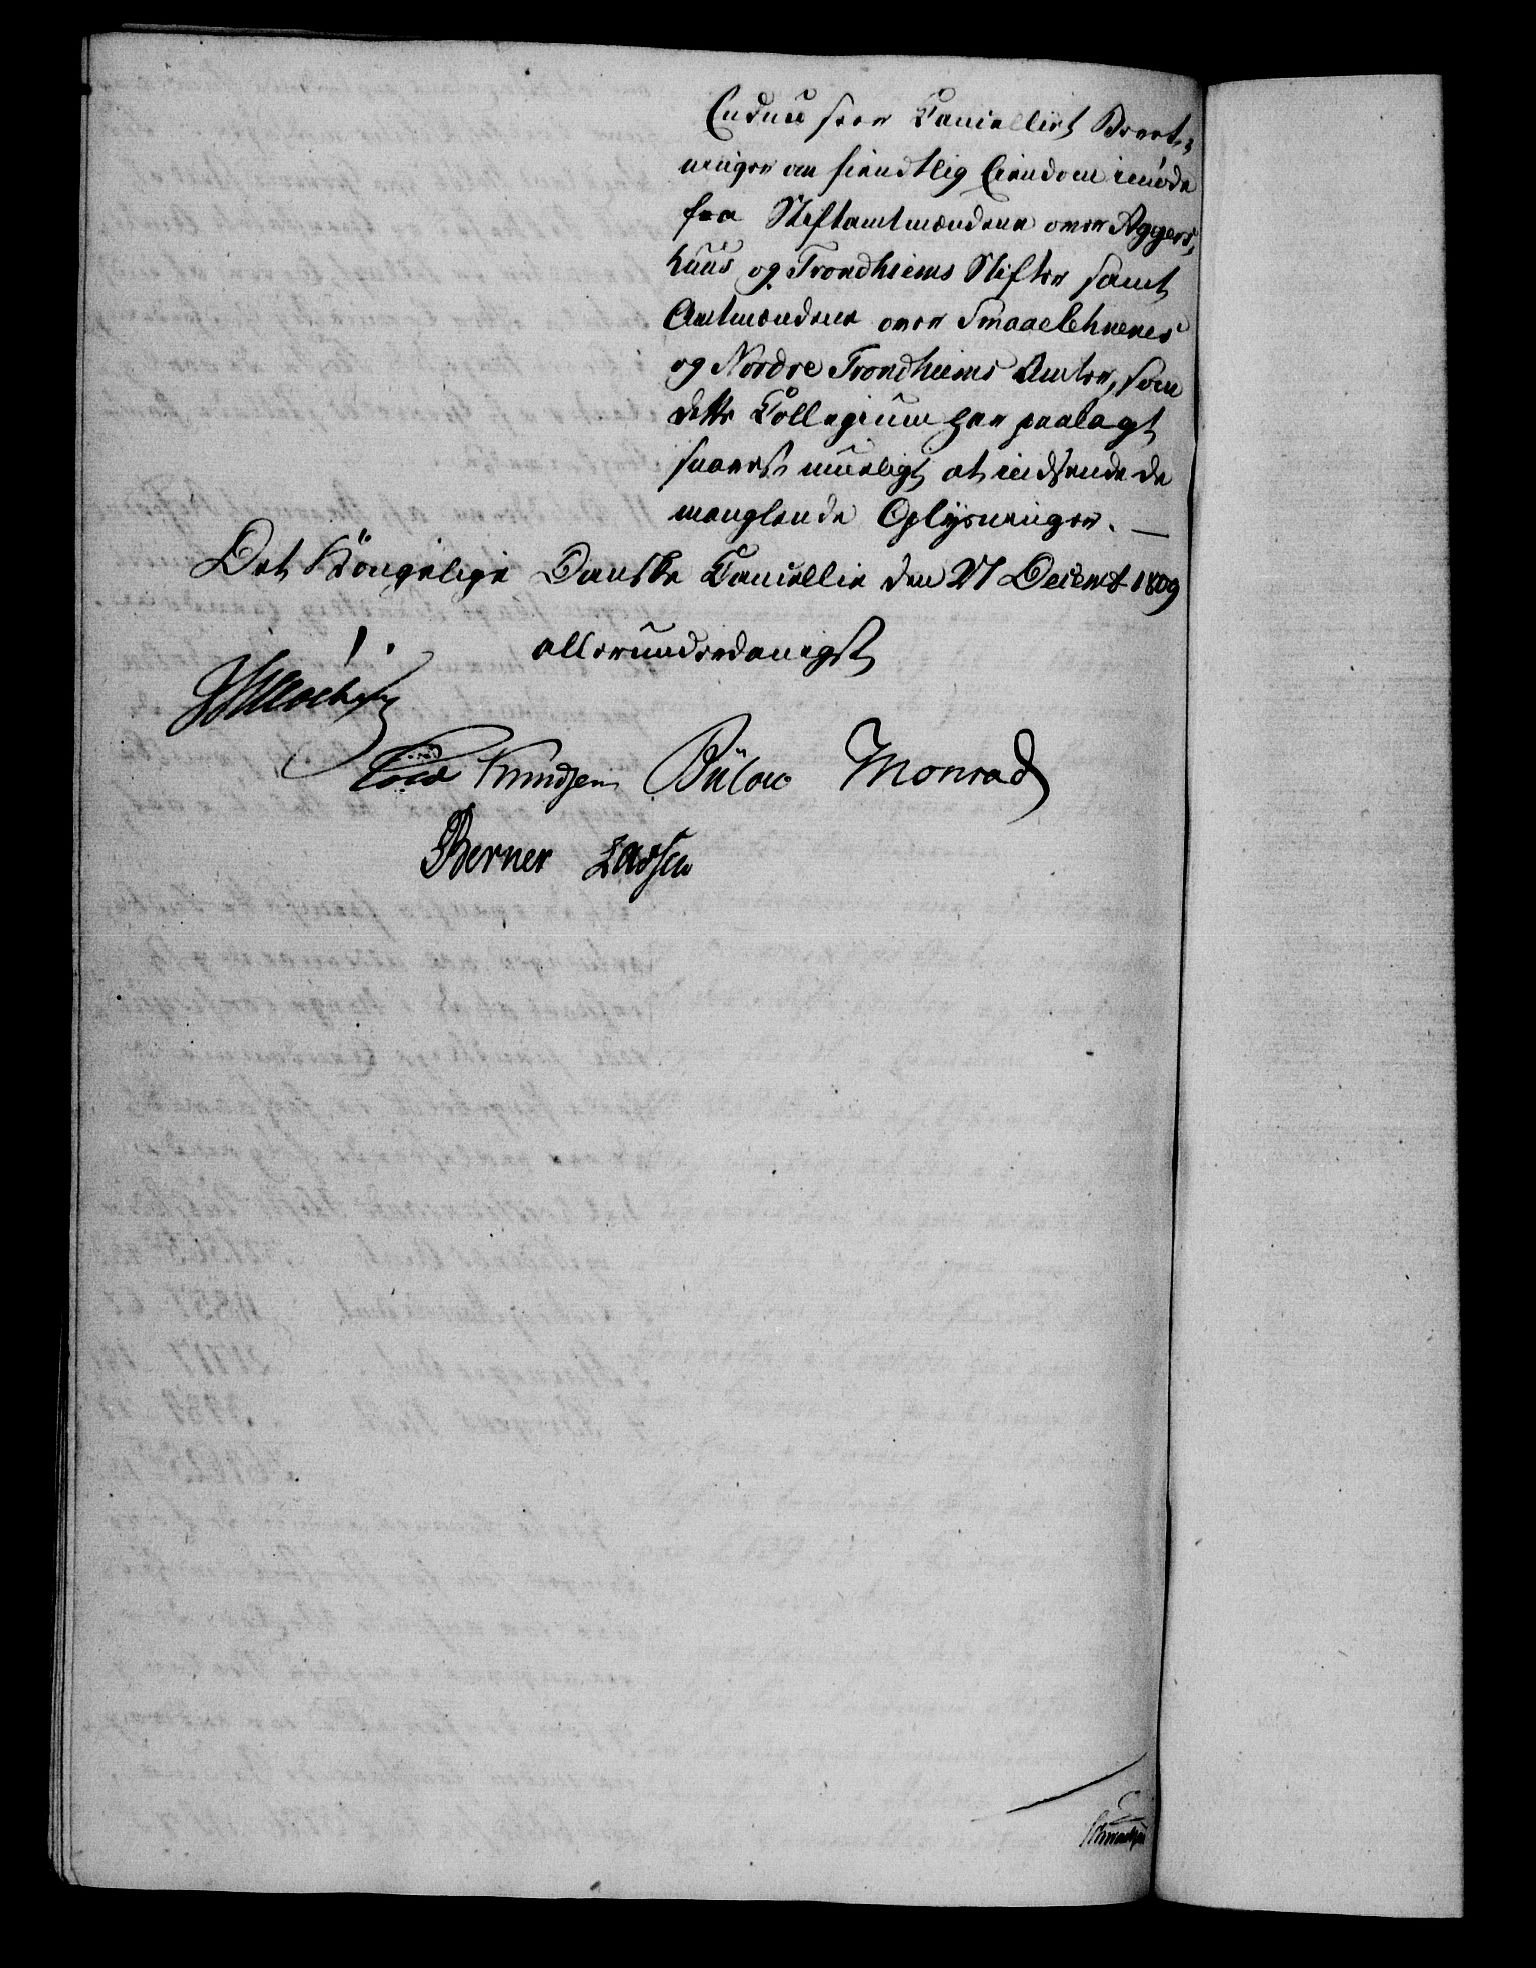 Endnu seer Cancelliet Beret-
ninger om fiendtlig Eiendom imøde
fra Stiftamtmændene over Aggers,
huus og Trondhiems Stifter samt
Amtmændene over Smaalehnenes
og Nordre Trondhiems Amter, som
dette Collegium har paalagt
snarest mueligt at indsende de
manglende Oplysninger. —
Det Kongelige Danske Cancellie den 27 Decembr 1809
allerunderdanigst
Cold Knudsen Bülow Monrad
Berner Lassen